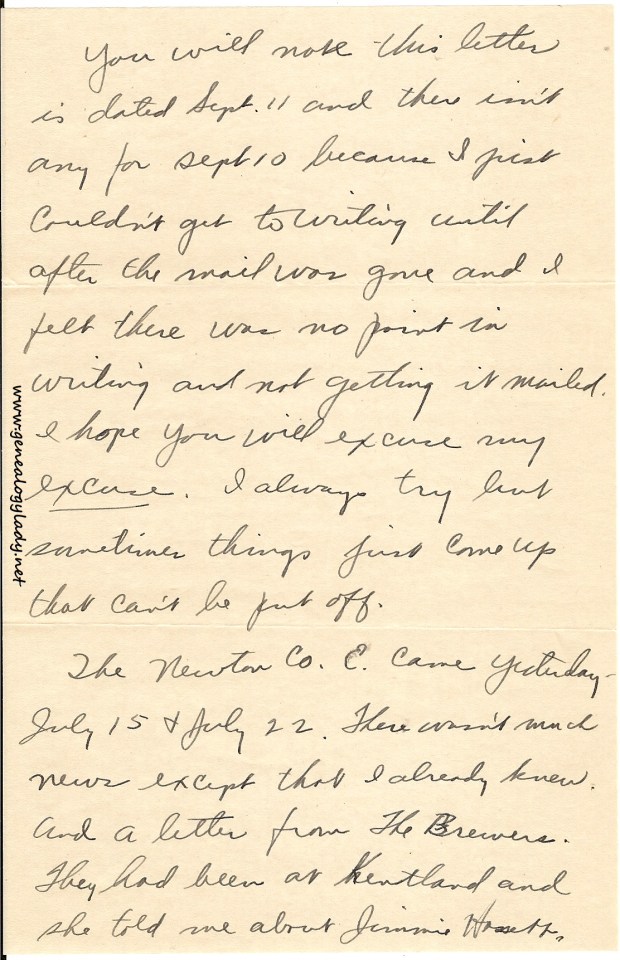 You will note this letter
is dated Sept. 11 and there isn't
any for Sept 10 because I just
couldn't get to writing until
after the mail was gone and I
felt there was no point in
writing and not getting it mailed.
I hope you will excuse my
excuse. I always try but
sometimes things just come up
that can't be put off.
The Newton Co. E. came yesterday-
July 15 & July 22. There wasn't much
news except that I already knew.
And a letter from The Brewers.
They had been at Kentland and
she told me about Jimmie
www.genealogylady.net